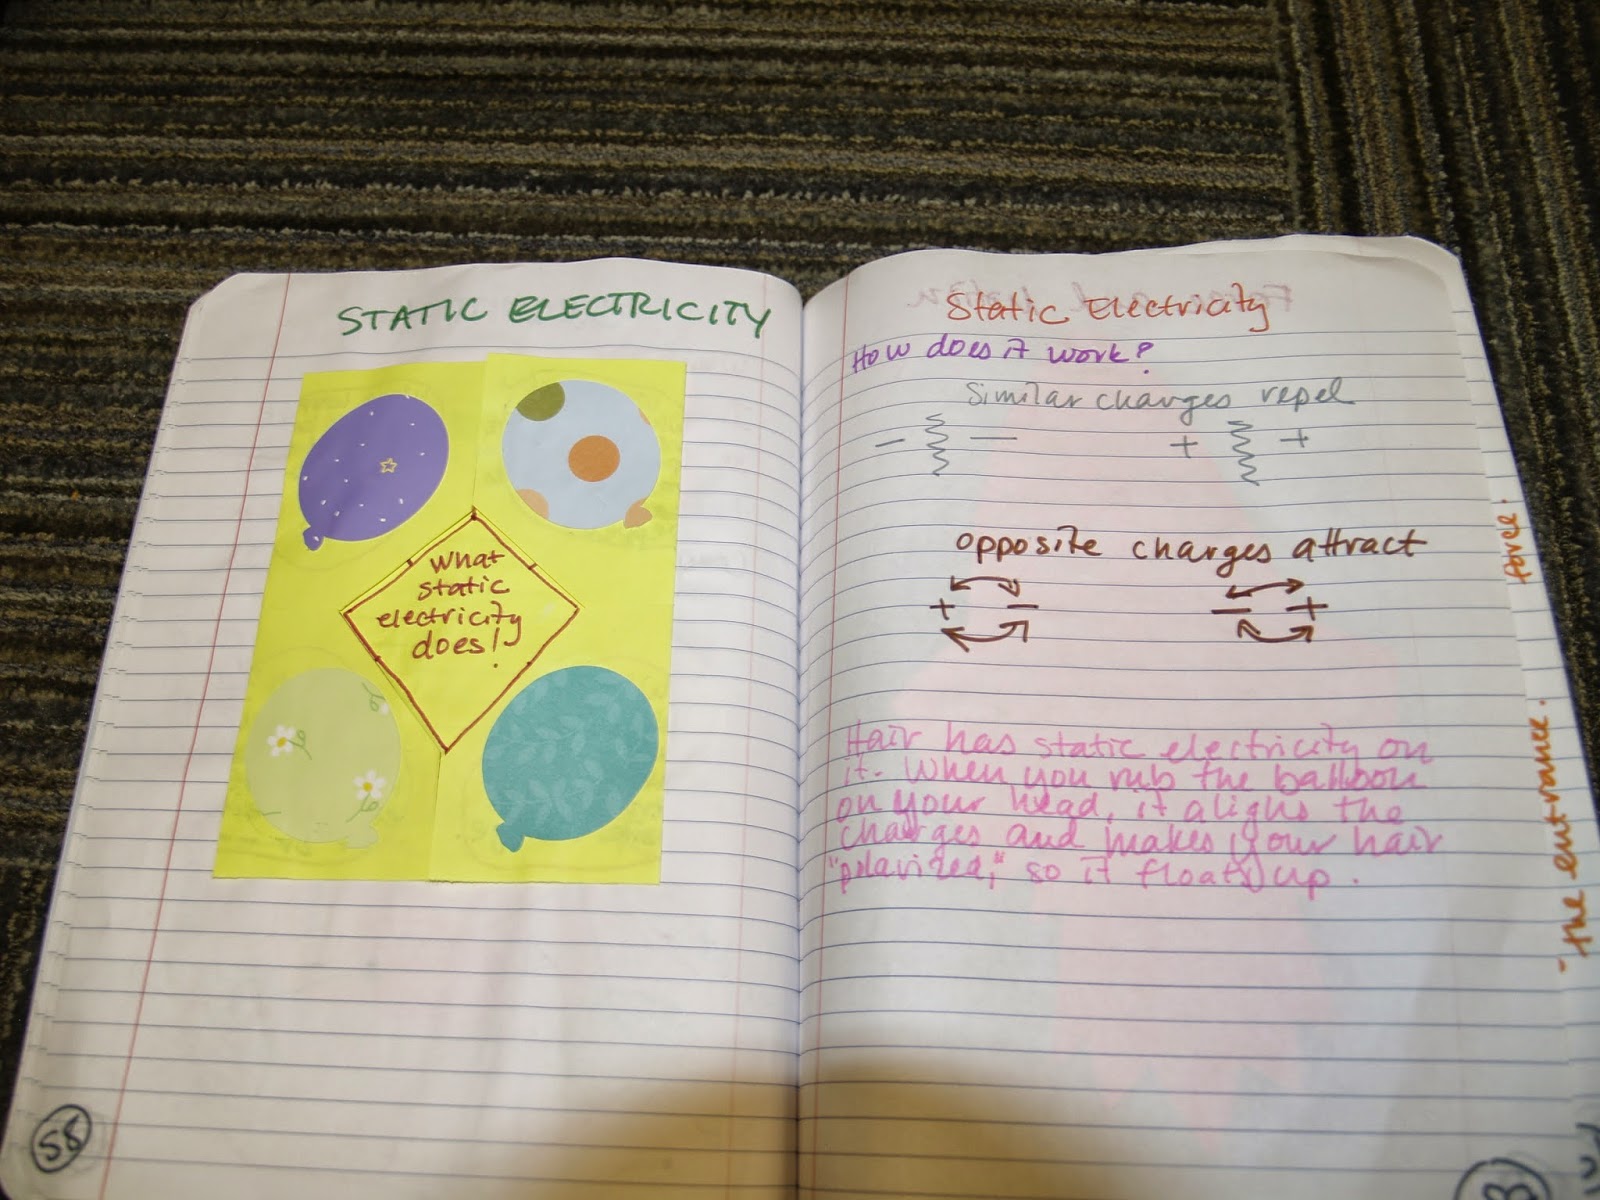 STATIC ELECTRICITY
What
static
electricity
does!
58
Static Electricity
How does it work?
Similar charges repel
− − + +
opposite charges attract
+ − − +
Hair has static electricity on
it. When you rub the balloon
on your head, it aligns the
charges and makes your hair
"polarized," so it floats up.
force.
the entrance.